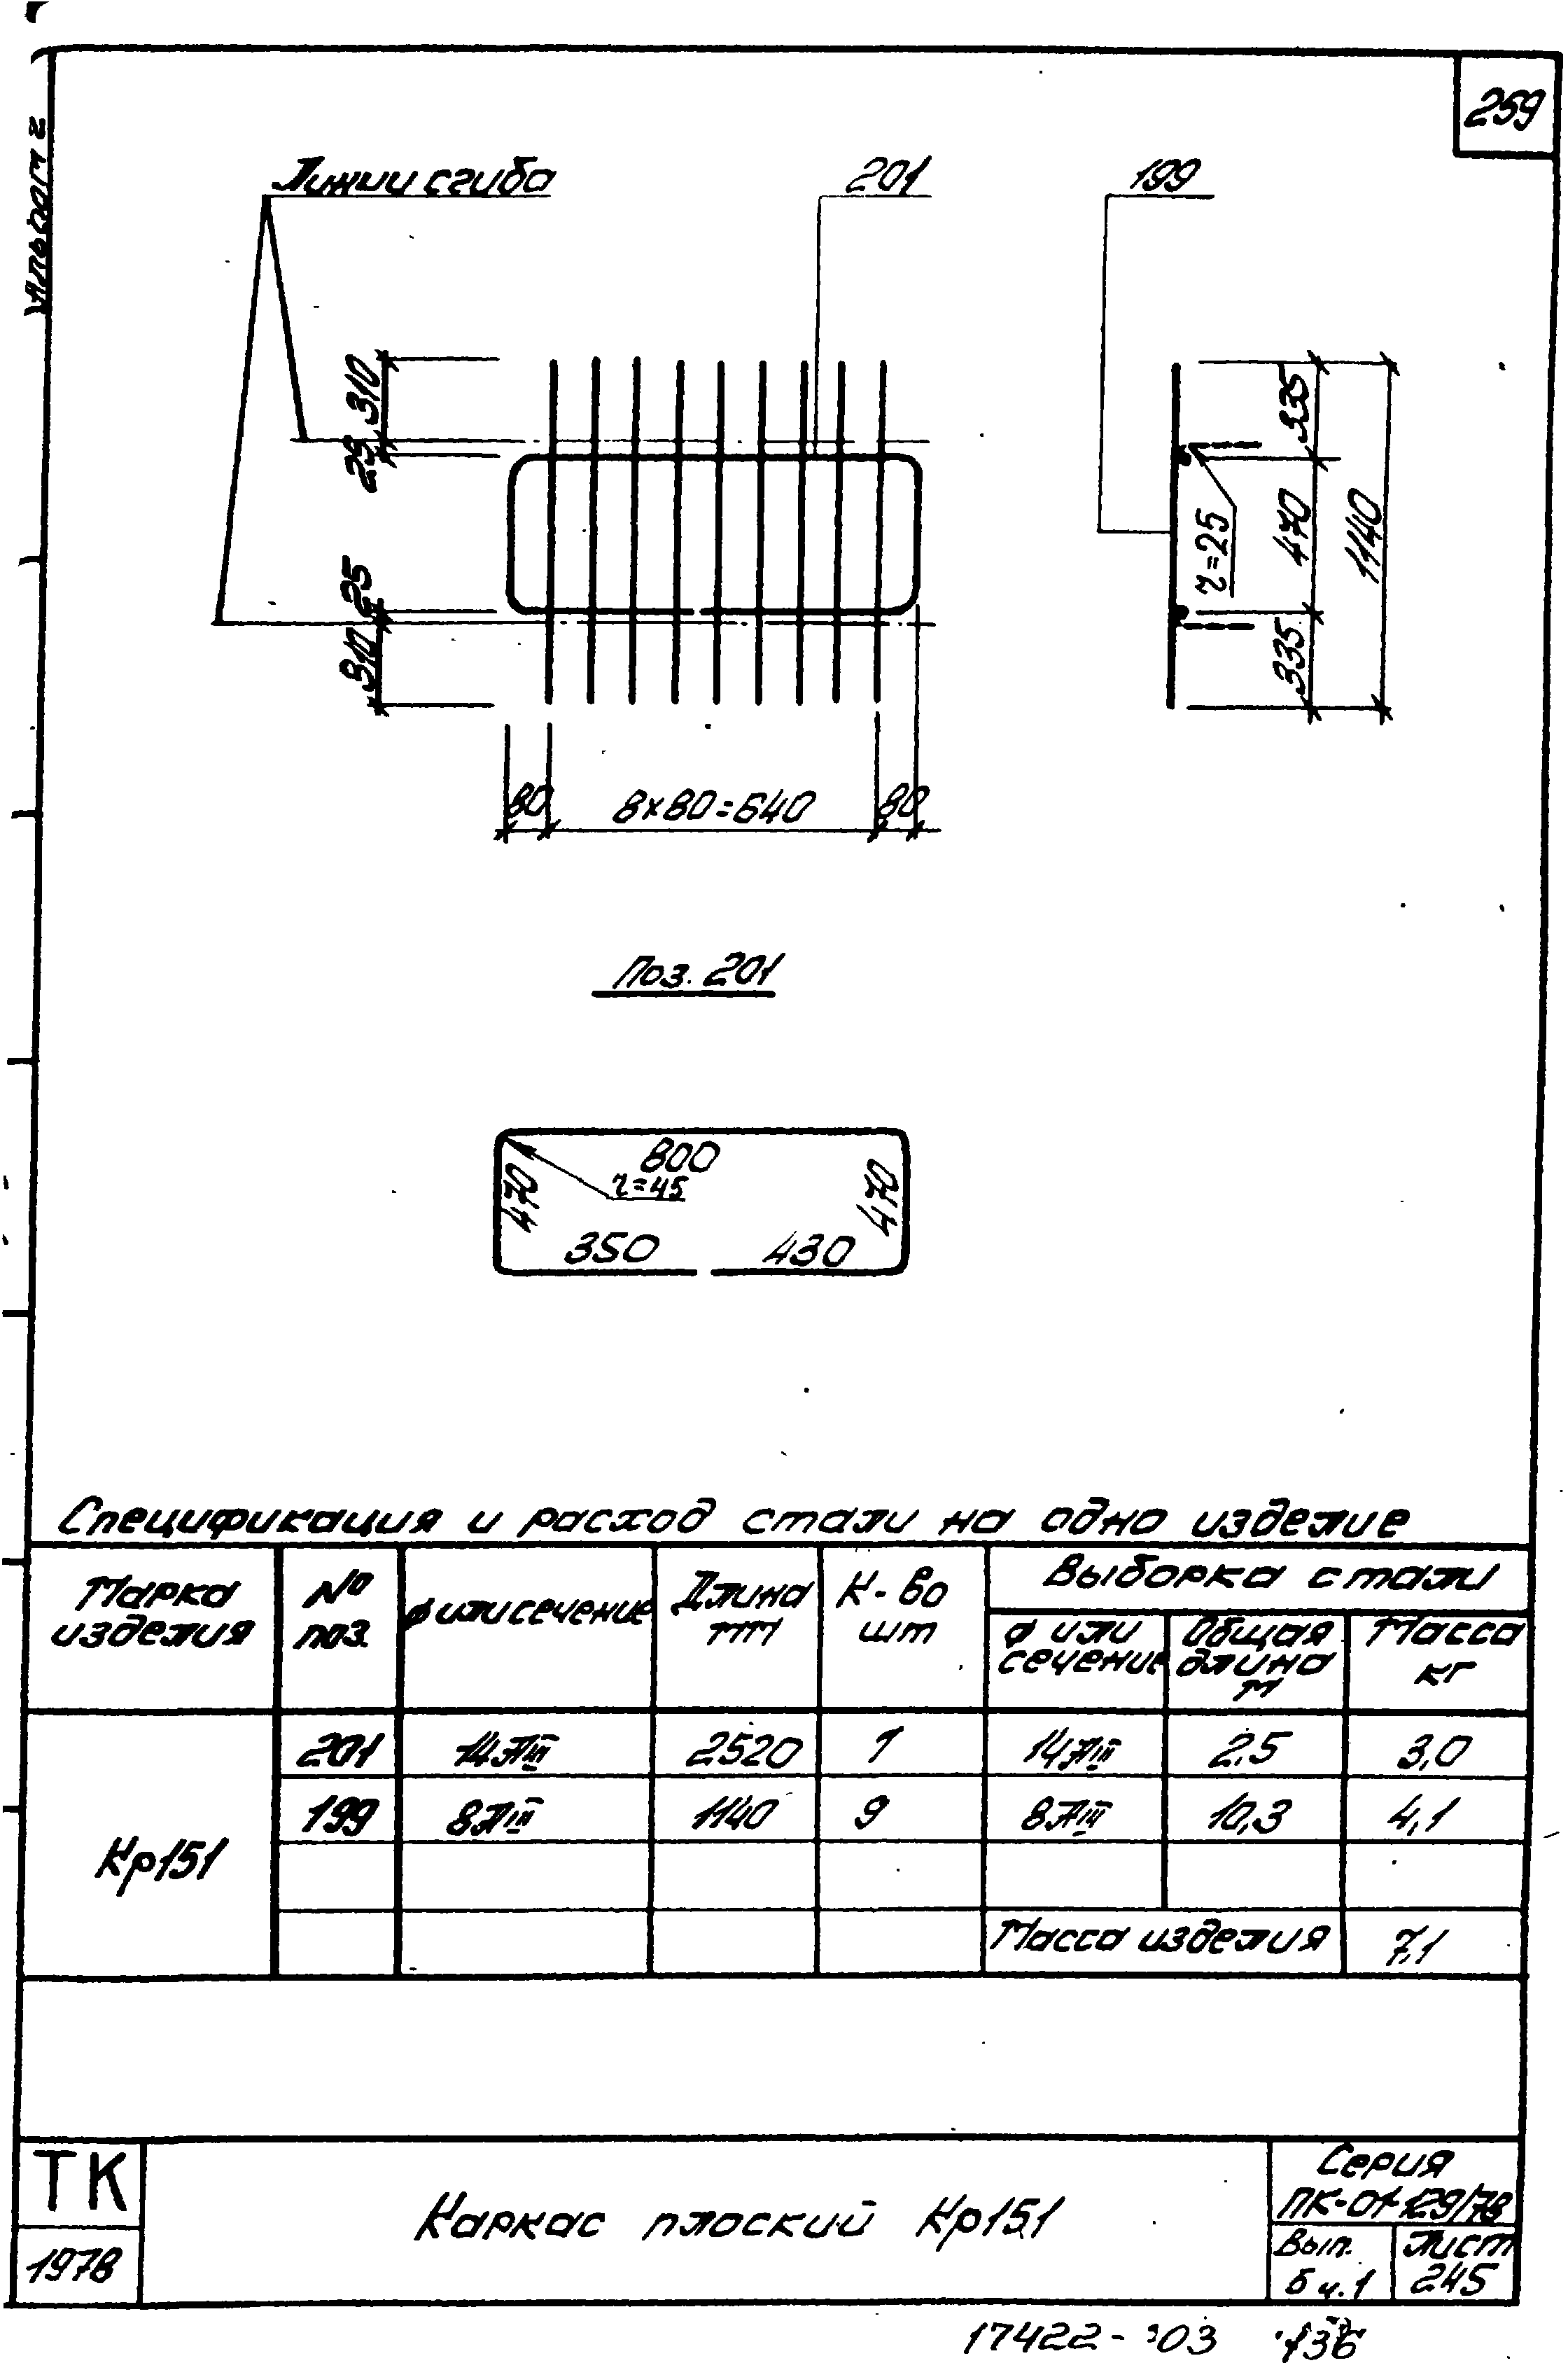 259
Альбом 2
Линии сгиба
201
199
310
25
25
310
80
8×80=640
80
335
470
335
1140
r=25
Поз. 201
800
r=45
470
470
350
430
Спецификация и расход стали на одно изделие
Марка изделия
№ поз.
ф или сечение
Длина мм
К-во шт
Выборка стали
ф или сечение
Общая длина м
Масса кг
Кр151
201 14АIII 2520 1 14АIII 2,5 3,0
199 8АIII 1140 9 8АIII 10,3 4,1
Масса изделия 7,1
ТК
1978
Каркас плоский Кр151
Серия
ПК-01-129/78
Вып.
6 ч.1
Лист
245
17422-03 136